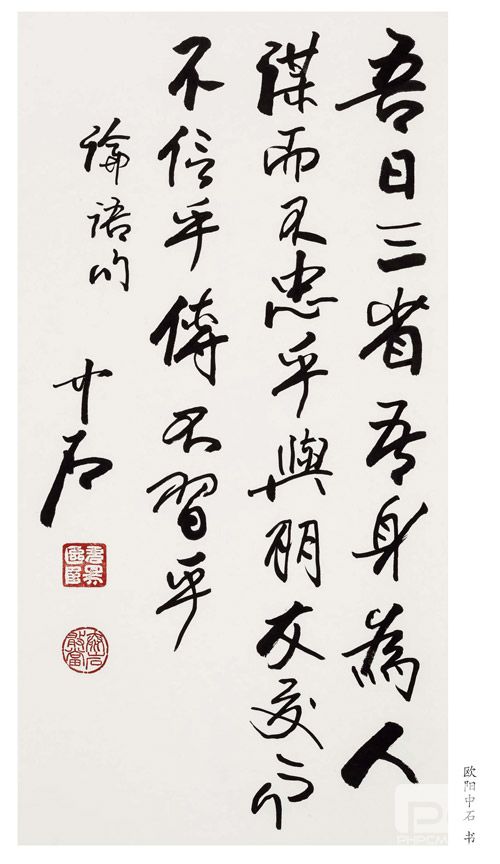 吾日三省吾身為人
謀而不忠乎與朋友交而
不信乎傳不習乎
論語句
中石
欧阳中石 书